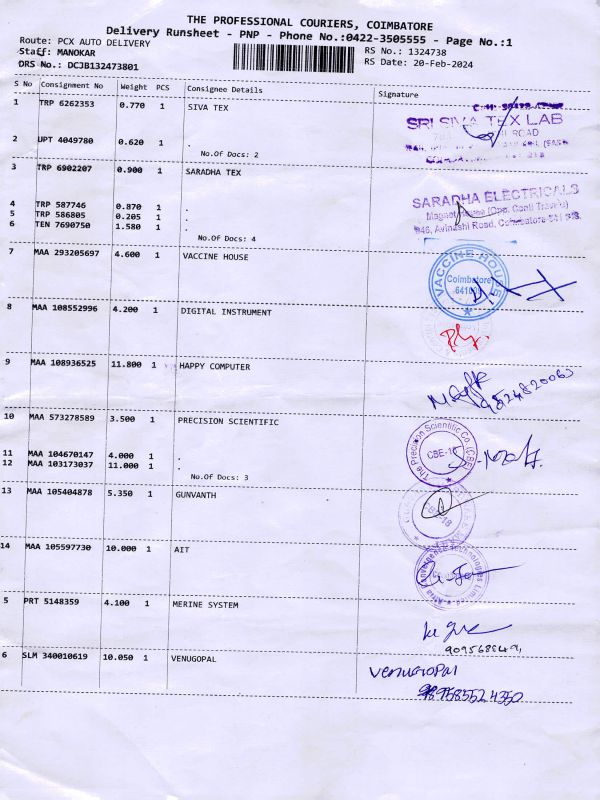 THE PROFESSIONAL COURIERS, COIMBATORE
Delivery Runsheet - PNP - Phone No.:0422-3505555 - Page No.:1
Route: PCX AUTO DELIVERY RS No.: 1324738
Staff: MANOKAR RS Date: 20-Feb-2024
DRS No.: DCJB132473801
S No Consignment No Weight PCS Consignee Details Signature
1 TRP 6262353 0.770 1 SIVA TEX
SRI SIVA TEX LAB
ROAD
2 UPT 4049780 0.620 1 .
No.Of Docs: 2
3 TRP 6902207 0.900 1 SARADHA TEX
SARADHA ELECTRICALS
4 TRP 587746 0.870 1 .
5 TRP 586805 0.205 1 .
6 TEN 7690750 1.580 1 .
946, Avinashi Road, Coimbatore-641 018.
No.Of Docs: 4
7 MAA 293205697 4.600 1 VACCINE HOUSE
VACCINE HOUSE
Coimbatore
8 MAA 108552996 4.200 1 DIGITAL INSTRUMENT
9 MAA 108936525 11.800 1 HAPPY COMPUTER
10 MAA 573278589 3.500 1 PRECISION SCIENTIFIC
The Precision Scientific Co. (CBE)
11 MAA 104670147 4.000 1 .
12 MAA 103173037 11.000 1 .
No.Of Docs: 3
13 MAA 105404878 5.350 1 GUNVANTH
14 MAA 105597730 10.000 1 AIT
5 PRT 5148359 4.100 1 MERINE SYSTEM
6 SLM 340010619 10.050 1 VENUGOPAL
Venugopal